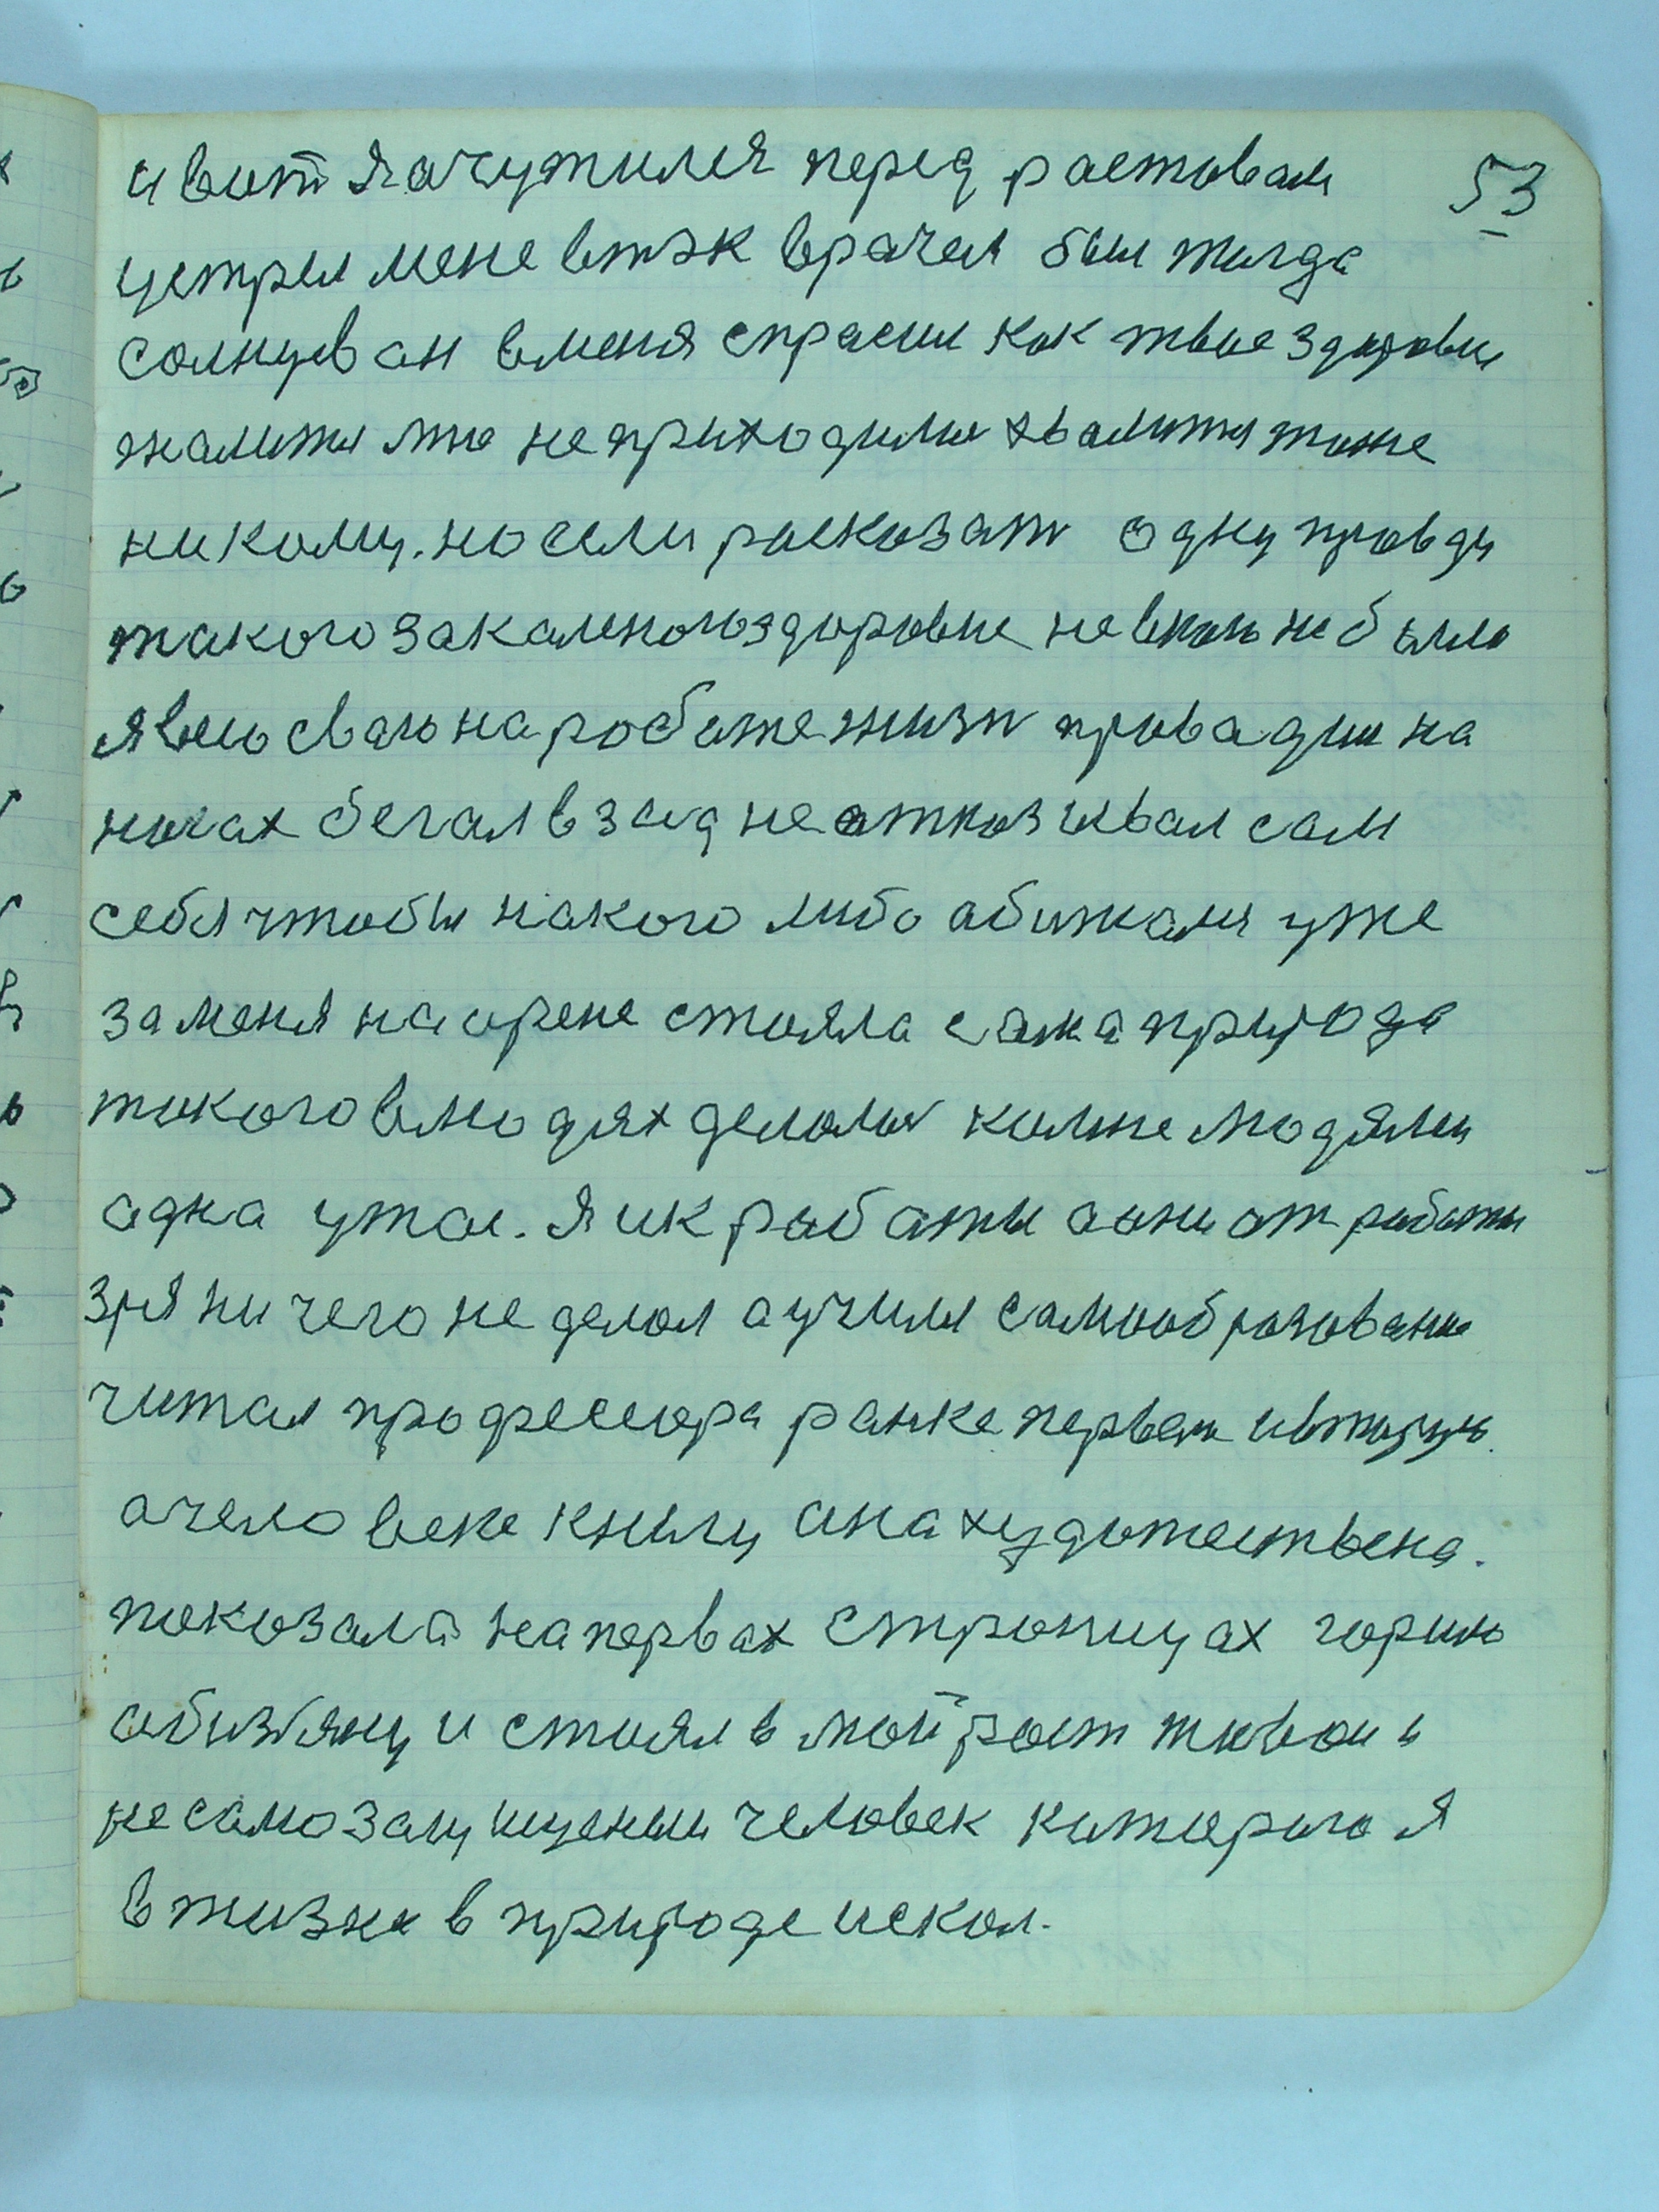 и вот я ачутился перед ростовам 53
цетрем мене втэк врачем был тогда
солнцев ан вменя спрасил как твое здоровы
жалится мне неприходилос хвалится тоже
никому. но если расказат одну правду
такого закаленого здоровие невком не было
я всю сваю на работе жизн провадил на
ногах бегал взад не отказывал сам
себя чтобы на кого либо абижался уже
заменя на арене стояла сама природа
такого влюдях делалос комне людями
адна утое. Я и к работы аони от работы
зря ничего не делал аучился самообразование
читал профессора ранке первою
ачеловеке книгу ана художествена.
показала на первах страницах горилю
абизяну и стоял в мой рост
не самозащищеныи человек которого я
в жизне в природе искал.